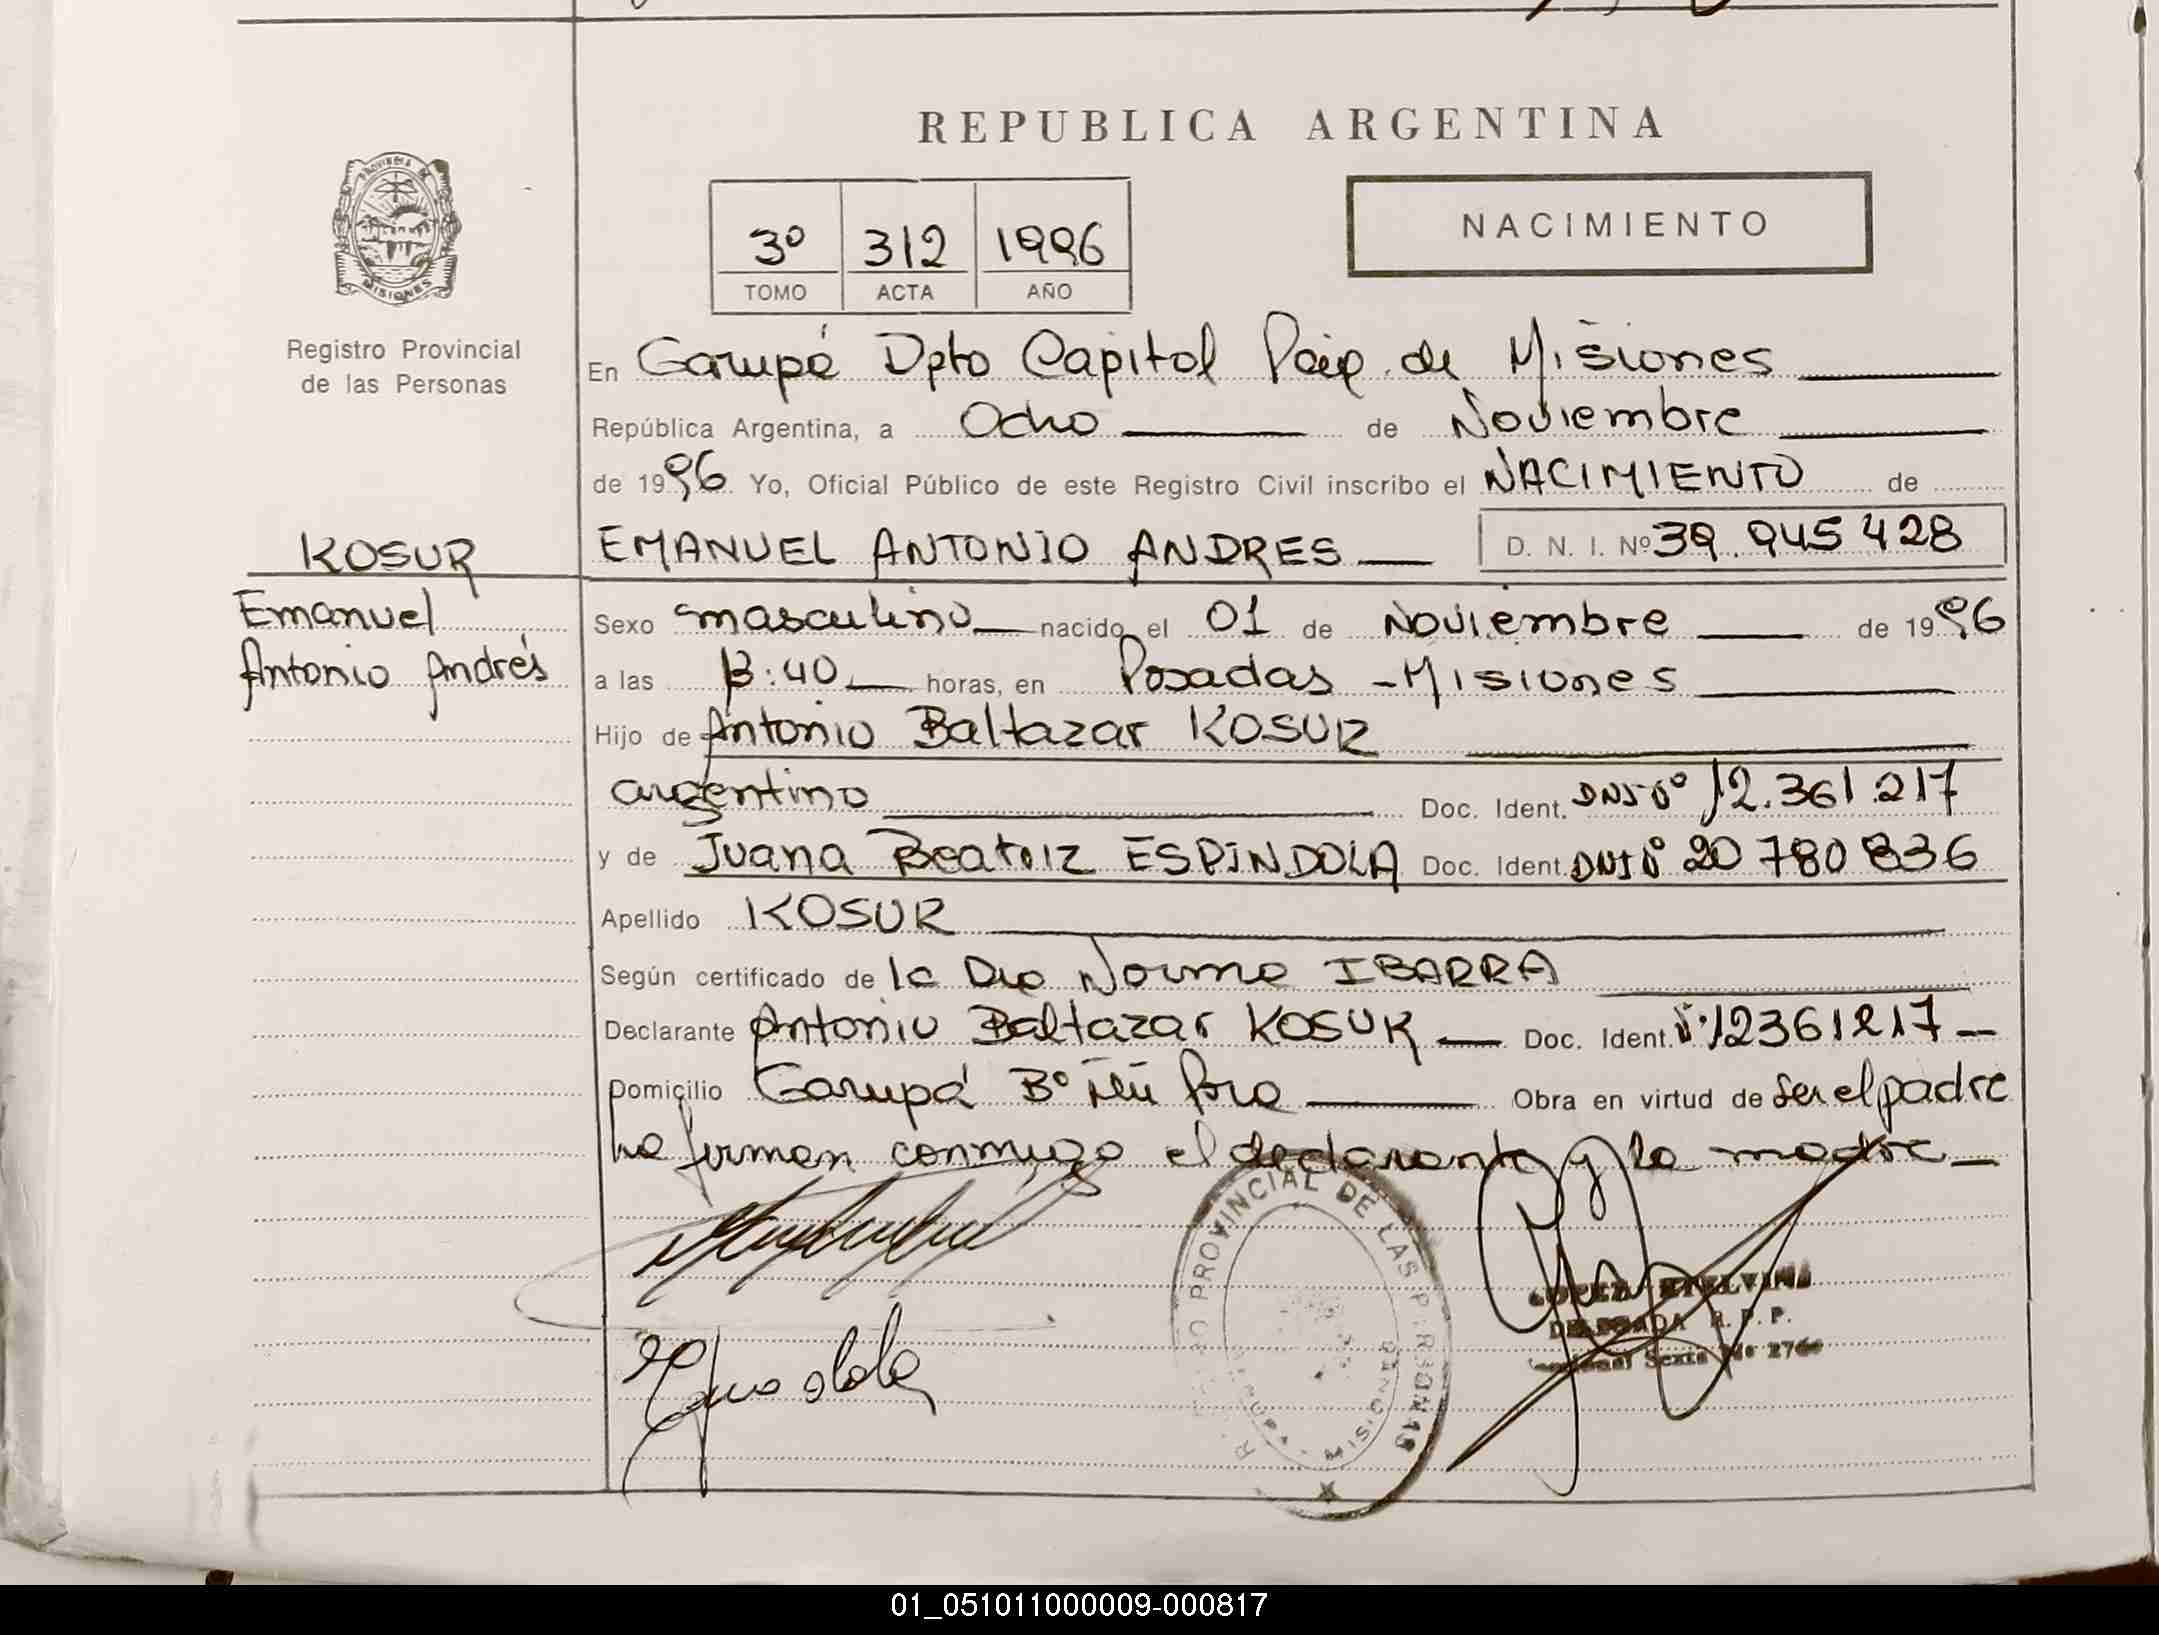 REPUBLICA ARGENTINA
PROVINCIA DE
MISIONES
Registro Provincial
de las Personas
3º 312 1996
TOMO ACTA AÑO
NACIMIENTO
En Garupá Dpto Capital de Misiones
República Argentina, a Ocho de Noviembre
de 1996 Yo, Oficial Público de este Registro Civil inscribo el NACIMIENTO de
KOSUR
EMANUEL ANTONIO ANDRES D. N. I. Nº 39.945428
Emanuel
Antonio Andrés
Sexo masculino nacido el 01 de Noviembre de 1996
a las 13:40 horas, en Posadas - Misiones
Hijo de Antonio Baltazar KOSUR
argentino Doc. Ident. DNI Nº 12.361.217
y de Juana Beatriz ESPINDOLA Doc. Ident. DNI Nº 20780836
Apellido KOSUR
Según certificado de la Norma IBARRA
Declarante Antonio Baltazar KOSUR Doc. Ident. Nº 12361217
Domicilio Garupá Bº Ñu Pora Obra en virtud de ser el padre
firman conmigo el declarante y la madre
PROVINCIAL DE LAS PERSONAS
MISIONES
DELEGADA R. P. P.
01_051011000009-000817